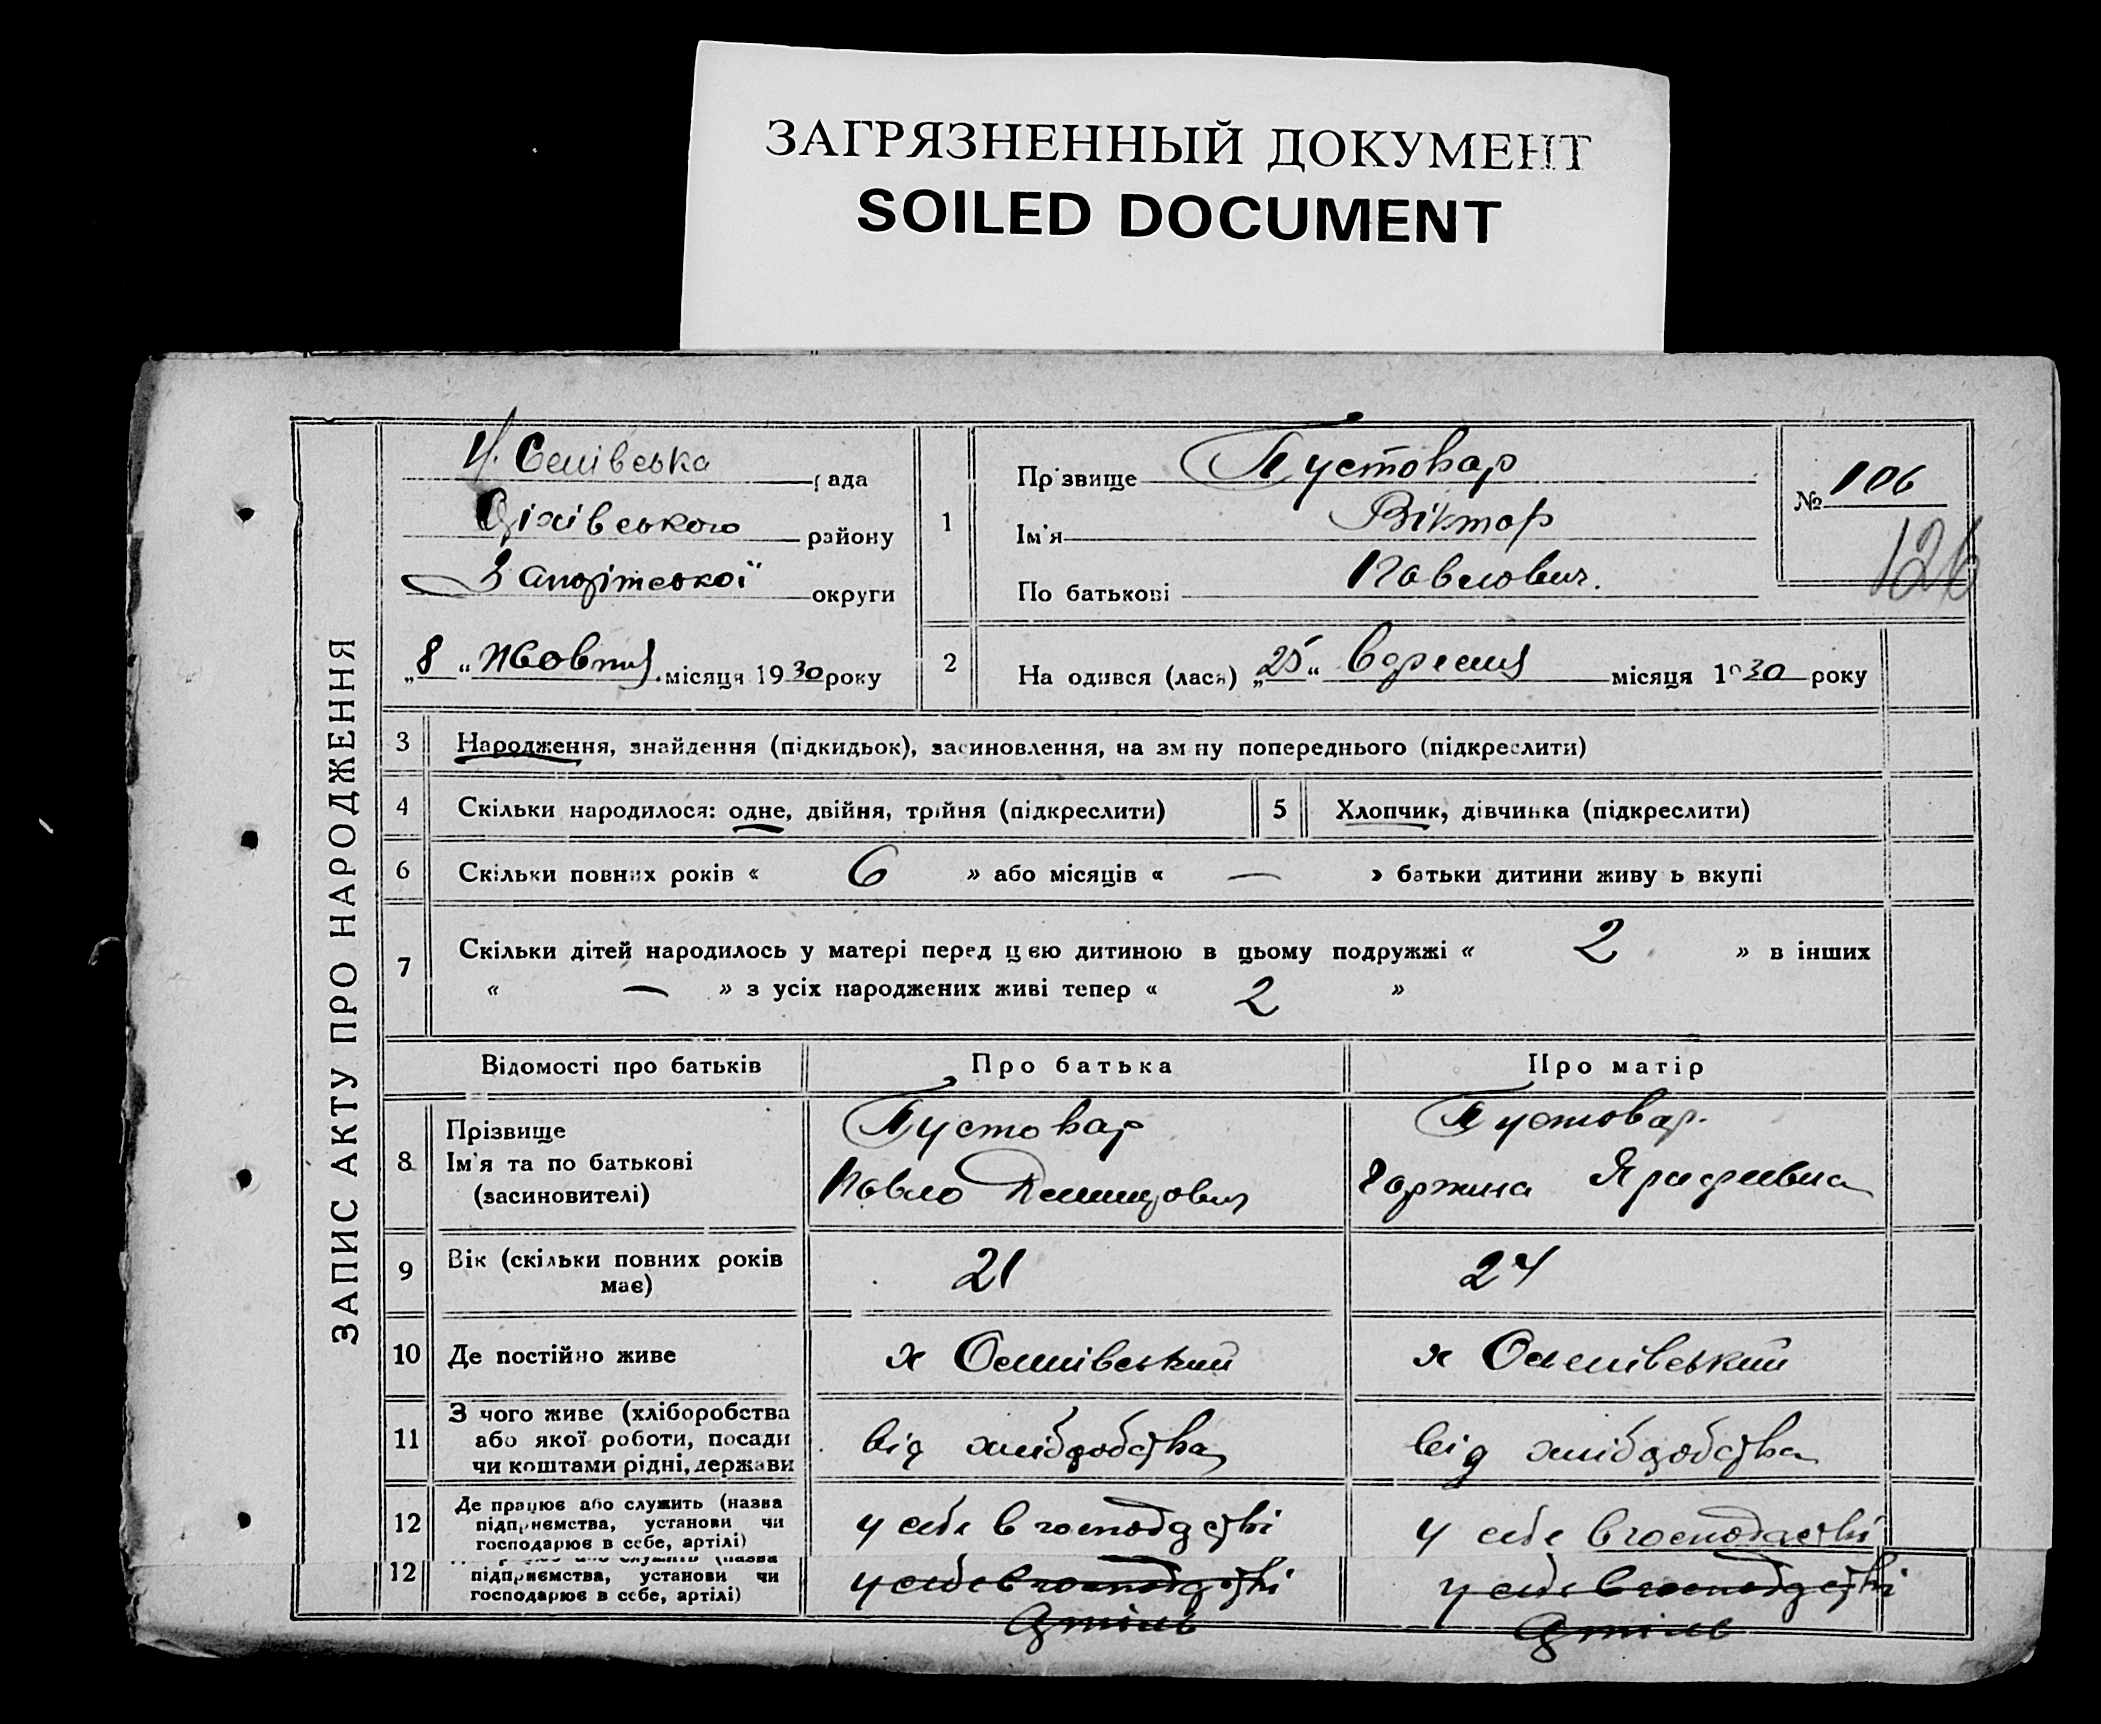 ЗАГРЯЗНЕННЫЙ ДОКУМЕНТ
SOILED DOCUMENT
ЗАПИС АКТУ ПРО НАРОДЖЕННЯ
рада
району
Запоріжської округи
„8“ Жовтня місяця 1930 року
1
Прізвище Пустовар
Ім'я Віктор
По батькові Павлович.
№ 106
126
2
На одився (лася) „25“ вересня місяця 1930 року
3 Народження, знайдення (підкидьок), засиновлення, на зміну попереднього (підкреслити)
4 Скільки народилося: одне, двійня, трійня (підкреслити)
5 Хлопчик, дівчинка (підкреслити)
6 Скільки повних років « 6 » або місяців « — » батьки дитини живуть вкупі
7 Скільки дітей народилось у матері перед цією дитиною в цьому подружжі « 2 » в інших
« — » з усіх народжених живі тепер « 2 »
Відомості про батьків Про батька Про матір
8 Прізвище
Ім'я та по батькові
(засиновителі)
Пустовар
Павло Демидович
Пустовар.
9 Вік (скільки повних років
має)
21
24
10 Де постійно живе
х
х
11 З чого живе (хліборобства
або якої роботи, посади
чи коштами рідні, держави
від хліборобства
від хліборобства
12 Де працює або служить (назва
підприємства, установи чи
господарює в себе, артілі)
у себе в господарстві
у себе в господарстві
12 підприємства, установи чи
господарює в себе, артілі)
у себе в господарстві
Артіль
у себе в господарстві
Артіль